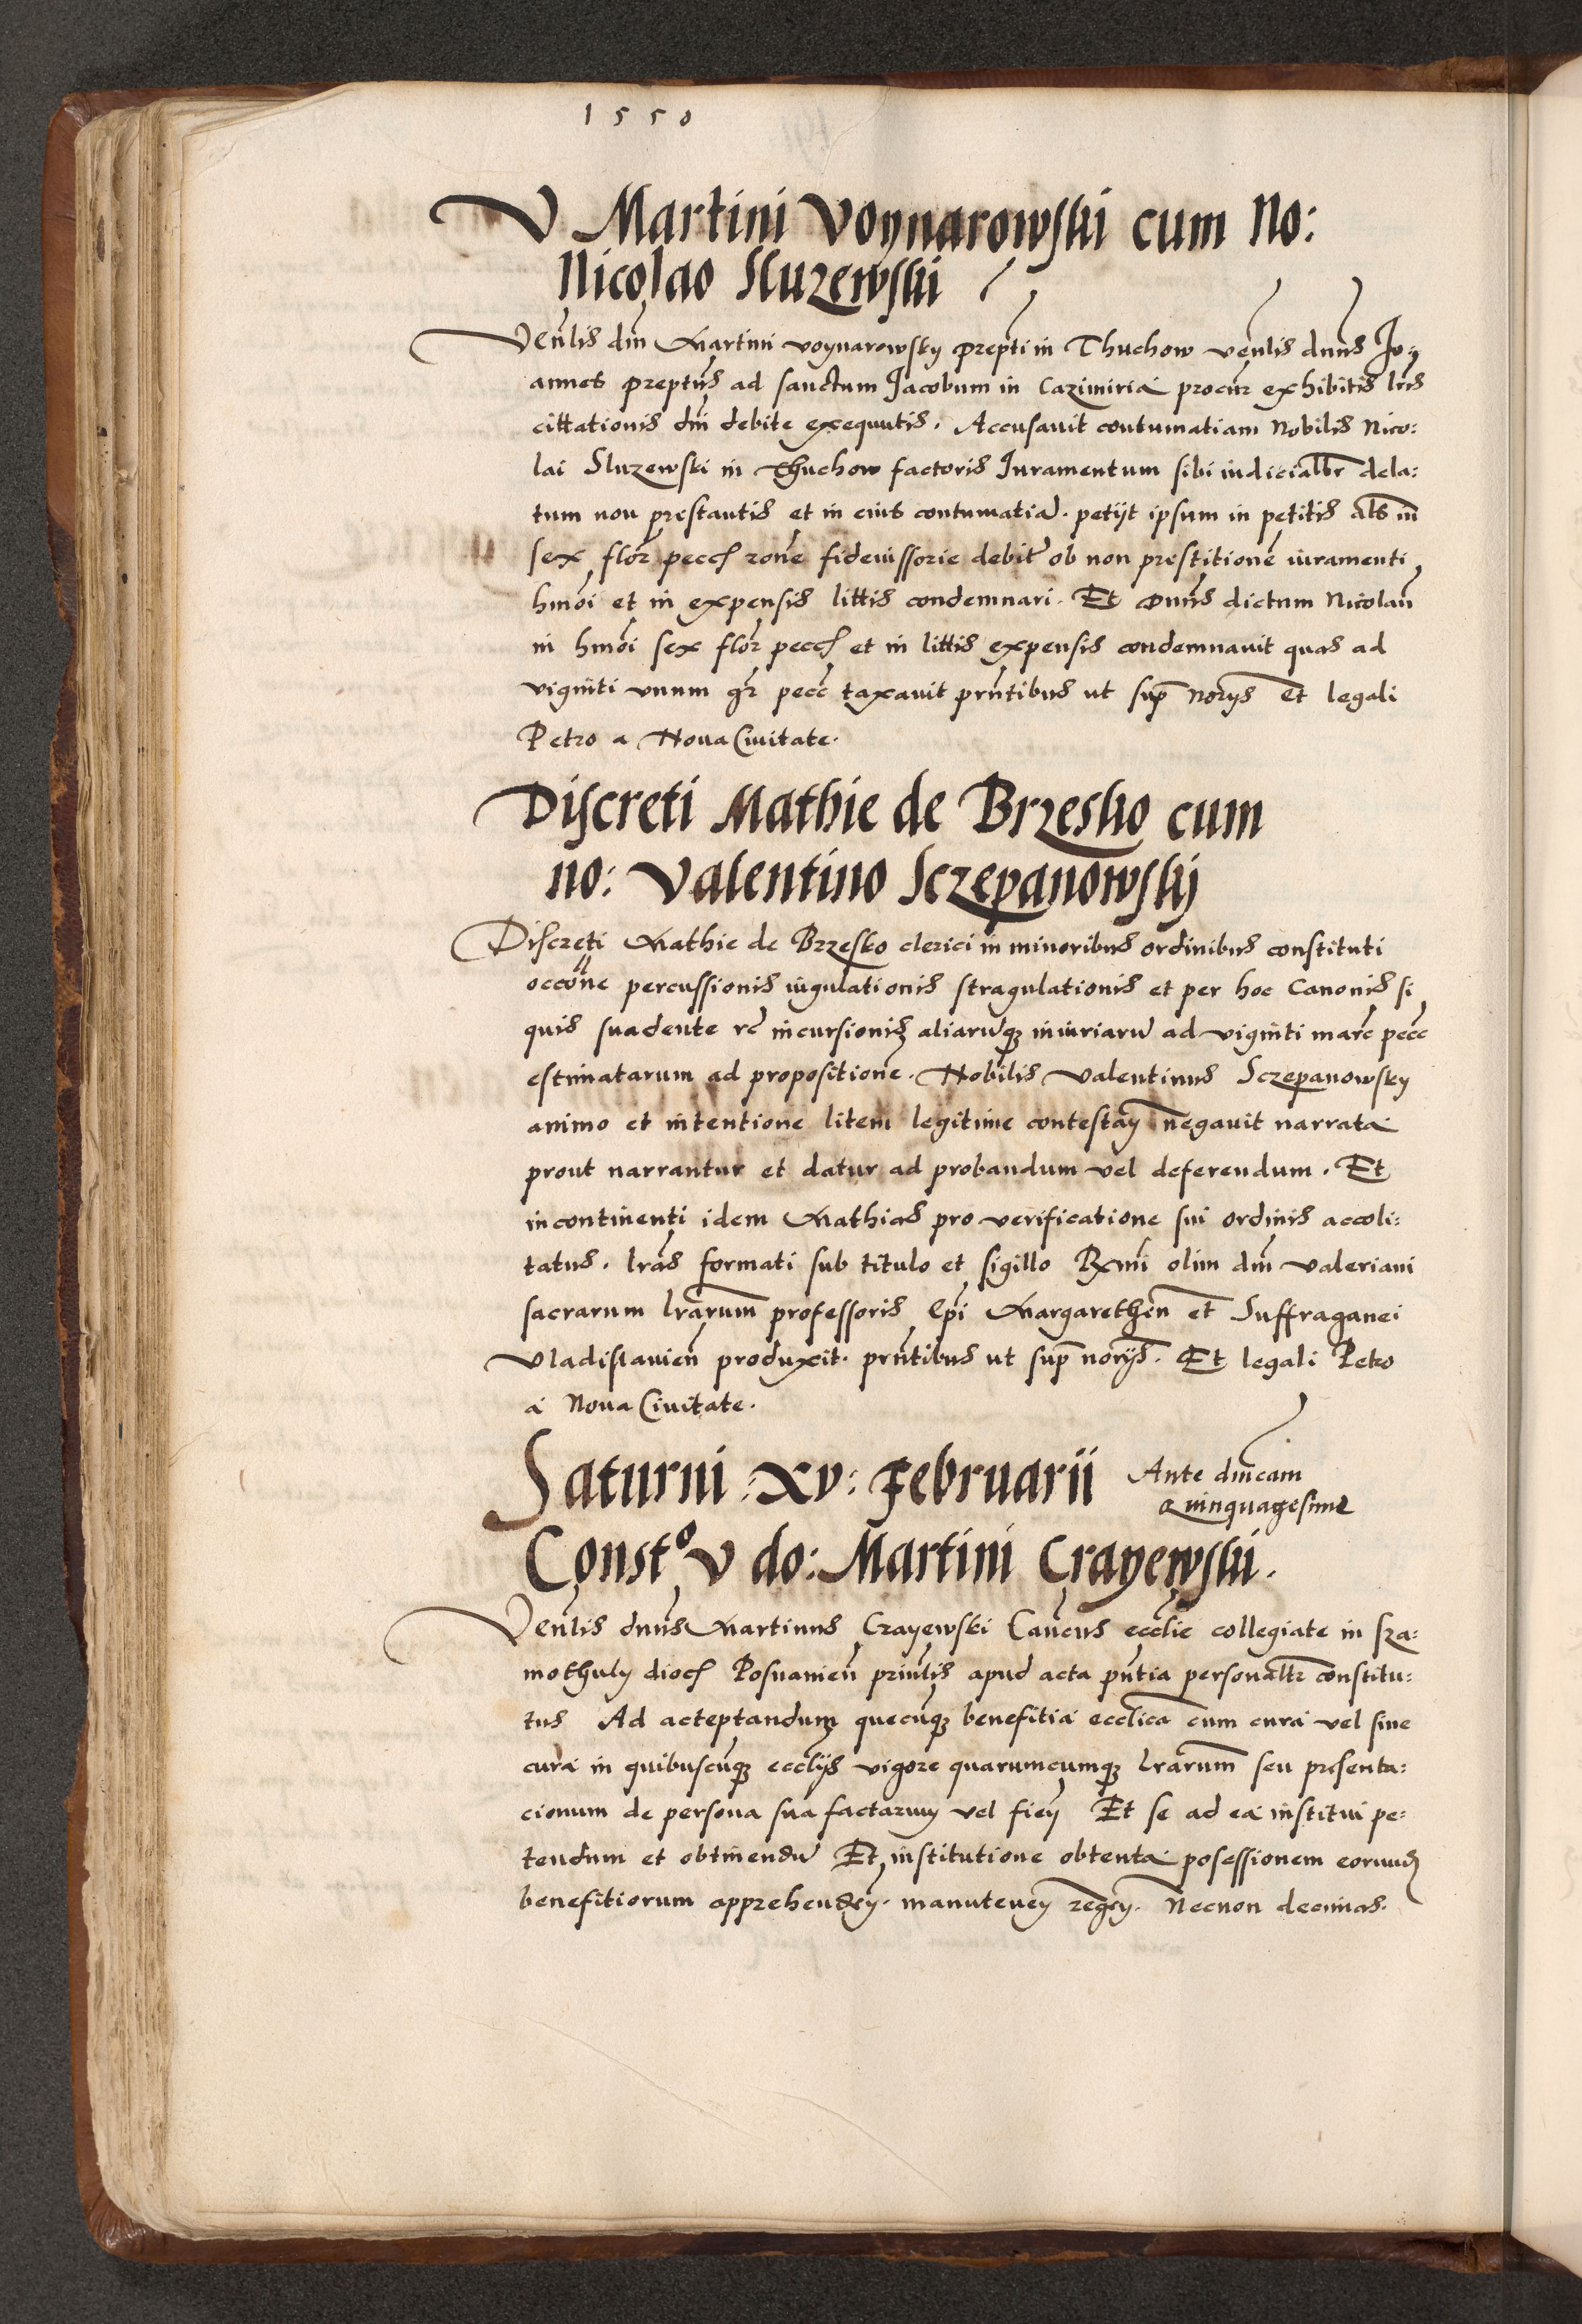 1550
V Martini Voynarowski cum No:
Nicolao Sluzewski
Venlis dni Martini voynarowsky prepti in Thuchow venlis dnus Jo=
annes preptus ad sanctum Jacobum in Cazimiria procur exhibitis lris
cittationis dni debite exequutis. Accusavit contumatiam Nobilis Nico:
lai Sluzewski in Thuchow factoris Juramentum sibi iudicialtr dela:
tum non prestantis et in eius contumatia. petijt ipsum in petitis als in
sex flor pecc rone fideiussorie debit ob non prestitione iuramenti
hmoi et in expensis littis condemnari. Et Dnus dictum Nicolau
in hmoi sex flor pecc et in littis expensis condemnavit quas ad
viginti vnum gr pecc taxavit prntibus ut sup Norijs Et legali
Petro a Nova Civitate.
Discreti Mathie de Brzesko cum
no: Valentino Sczepanowskij
Discreti Mathie de Brzesko clerici in minoribus ordinibus constituti
occone percussionis iugulationis stragulationis et per hoc Canonis si
quis suadente rc incursionis aliarumq iniuriaru ad viginti marc pecc
estimatarum ad propositione. Nobilis Valentinus Sczepanowsky
animo et intentione litem legitime contestan negavit narrata
prout narrantur et datur ad probandum vel deferendum. Et
incontinenti idem Mathias pro verificatione sui ordinis accoli:
tatus. lras formati sub titulo et sigillo Rxmi olim dni Valeriani
sacrarum lrarum professoris Epi Margarethen et Suffraganei
Vladislavien produxit. prntibus ut sup norijs. Et legali Petro
a Nova Civitate.
Saturni :xv: Februarii Ante dnicam
Quinquagesime
Constᵒ V do: Martini Crayewski.
Venlis dnus Martinus Crayewski Cancus ecclie collegiate in sza:
mothuly dioc Posnanien prinlis apud acta pntia personaltr constitu:
tus Ad acceptandum quecunq benefitia ecclica cum cura vel sine
cura in quibuscunq ecclijs vigore quarumcumq lrarum seu presenta:
cionum de persona sua factarum vel fien Et se ad ea institui pe:
tendum et obtinendu Et institutione obtenta posessionem eorund
benefitiorum apprehenden. manutenen regen. Necnon decimas.